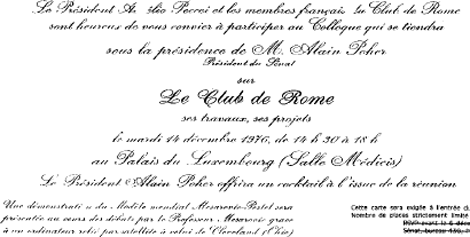 Le Président A. lio Peccei et les membres français du Club de Rome
sont heureux de vous convier à participer au Colloque qui se tiendra
sous la présidence de M. Alain Poher
Président du Sénat
sur
Le Club de Rome
ses travaux, ses projets
le mardi 14 décembre 1976, de 14 h 30 à 18 h
au Palais du Luxembourg (Salle Médicis)
Le Président Alain Poher offrira un cocktail à l'issue de la réunion
Une démonstrati n du Modèle mondial Mesarovic-Pestel sera
présentée au cours des débats par le Professeur Mesarovic grace
à un ordinateur relié par satellite à celui de Cleveland (Ohio)
Cette carte sera exigée à l'entrée d
Nombre de places strictement limité
RSVP avant le 6 déce
Sénat, bureau